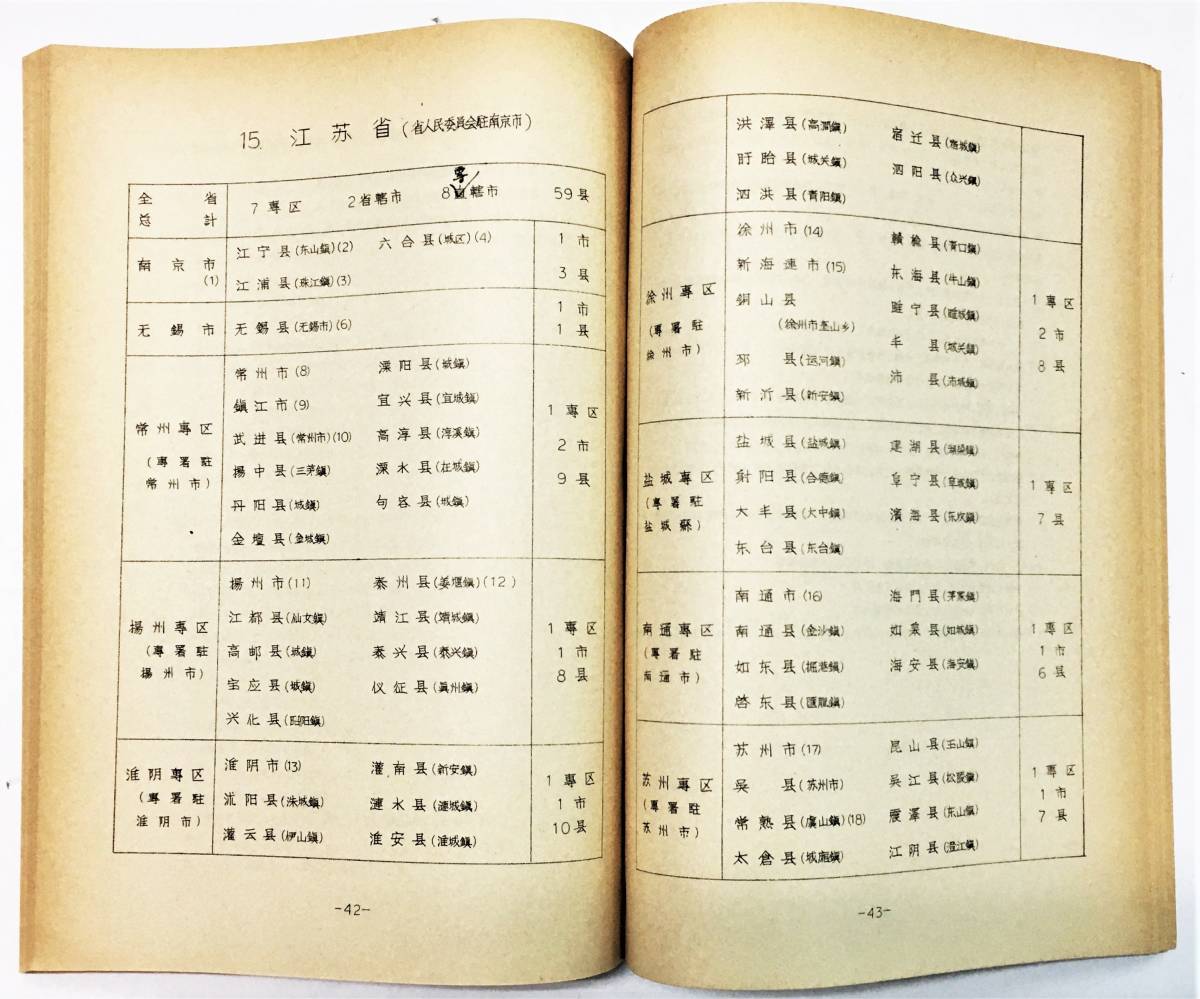 15. 江苏省(省人民委員会駐南京市)
全省总計 7専区 2省轄市 8直轄市 59县
専
南京市(1) 江宁县(东山鎮)(2) 六合县(城区)(4) 1市
江浦县(珠江鎮)(3) 3县
无錫市 无錫县(无錫市)(6) 1市 1县
常州市(8) 溧阳县(城鎮)
鎮江市(9) 宜兴县(宜城鎮) 1専区
常州専区 武进县(常州市)(10) 高淳县(淳溪鎮) 2市
(専署駐常州市) 揚中县(三茅鎮) 溧水县(在城鎮) 9县
丹阳县(城鎮) 句容县(城鎮)
金壇县(金城鎮)
揚州市(11) 泰州县(姜堰鎮)(12)
揚州専区 江都县(仙女鎮) 靖江县(靖城鎮) 1専区
(専署駐揚州市) 高邮县(城鎮) 泰兴县(泰兴鎮) 1市
宝应县(城鎮) 仪征县(眞州鎮) 8县
兴化县(昭阳鎮)
淮阴専区 淮阴市(13) 灌南县(新安鎮) 1専区
(専署駐淮阴市) 沭阳县(沭城鎮) 漣水县(漣城鎮) 1市
灌云县(伊山鎮) 淮安县(淮城鎮) 10县
-42-
洪澤县(高澗鎮) 宿迁县(宿城鎮)
盱眙县(城关鎮) 泗阳县(众兴鎮)
泗洪县(青阳鎮)
徐州市(14) 贛榆县(青口鎮)
徐州専区 新海連市(15) 东海县(牛山鎮) 1専区
(専署駐徐州市) 銅山县 睢宁县(睢城鎮) 2市
(徐州市奎山乡) 丰县(城关鎮) 8县
邳县(运河鎮) 沛县(沛城鎮)
新沂县(新安鎮)
盐城县(盐城鎮) 建湖县(湖垛鎮)
盐城専区 射阳县(合德鎮) 阜宁县(阜城鎮) 1専区
(専署駐盐城縣) 大丰县(大中鎮) 濱海县(东坎鎮) 7县
东台县(东台鎮)
南通市(16) 海門县(茅家鎮)
南通専区 南通县(金沙鎮) 如皋县(如城鎮) 1専区
(専署駐南通市) 如东县(掘港鎮) 海安县(海安鎮) 1市
啓东县(匯龍鎮) 6县
苏州市(17) 昆山县(玉山鎮)
苏州専区 吳县(苏州市) 吳江县(松陵鎮) 1専区
(専署駐苏州市) 常熟县(虞山鎮)(18) 震澤县(东山鎮) 1市
太倉县(城廂鎮) 江阴县(澄江鎮) 7县
-43-